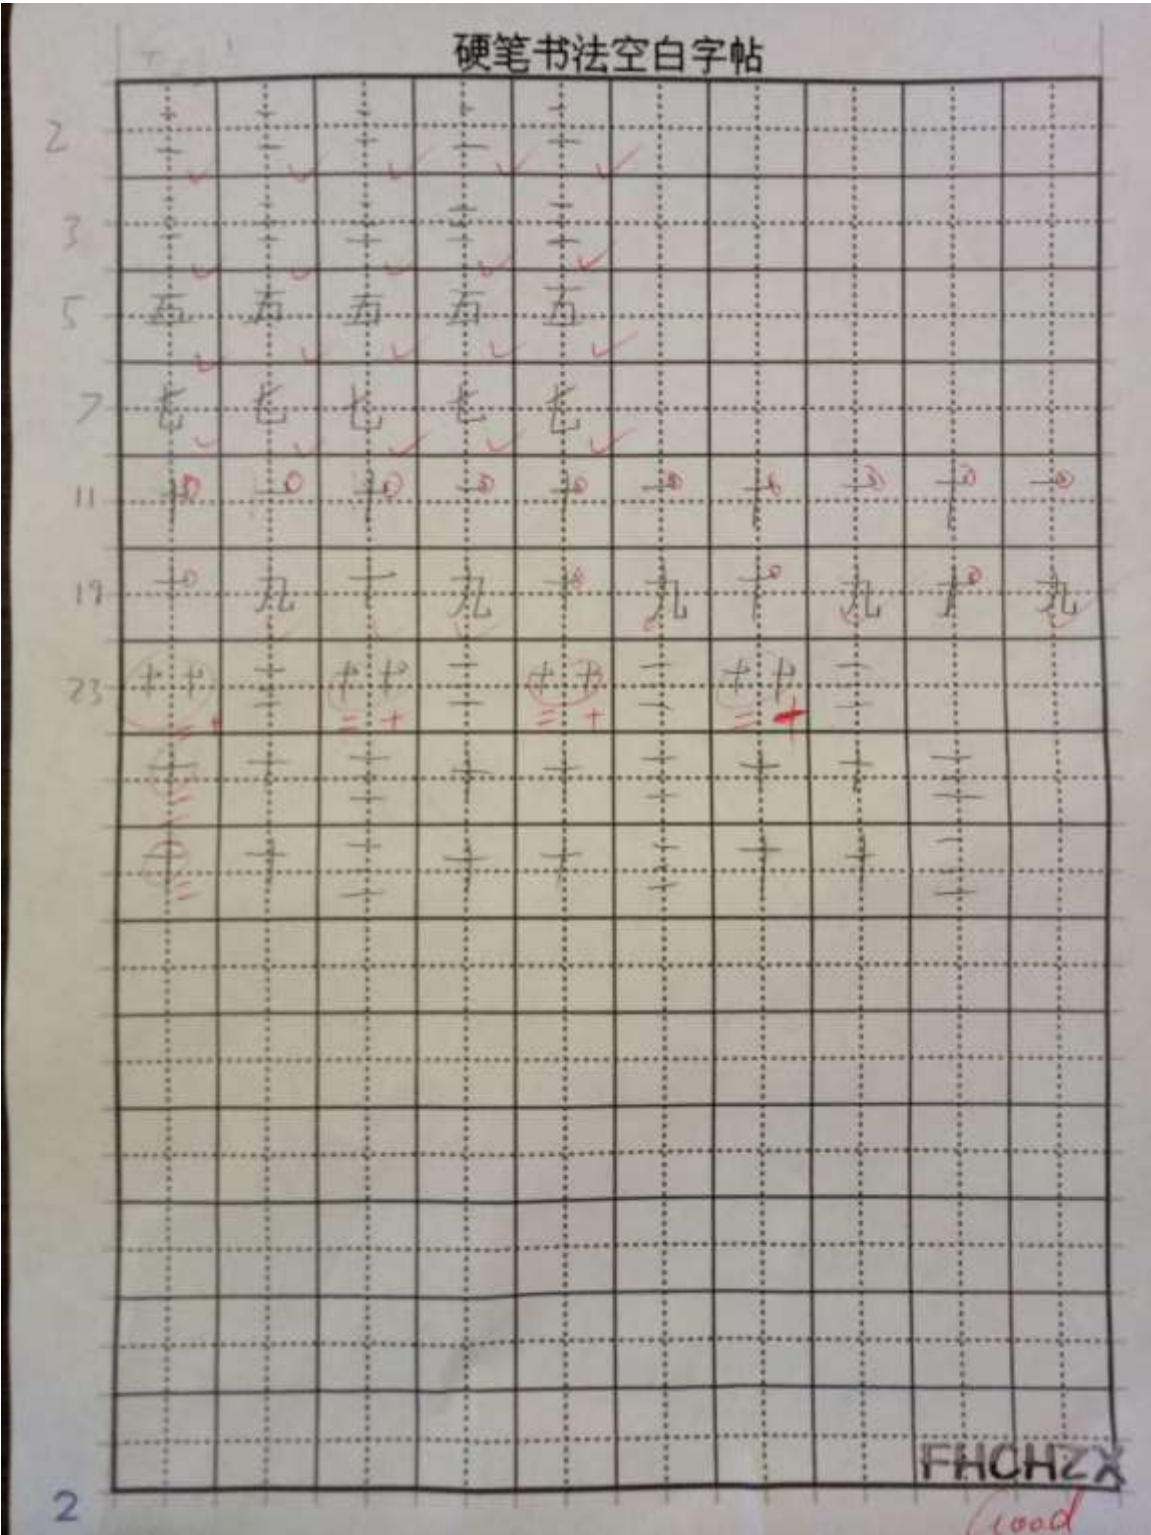 硬笔书法空白字帖
2 二 二 二 二 二
3 三 三 三 三 三
5 五 五 五 五 五
7 七 七 七 七 七
11 十 一 十 一 十 一 十 一 十 一
19 十 九 十 九 十 九 十 九 十 九
23 十十 三 十十 三 十十 三 十十 三
二 十 = +
二 十 三 十 十 三 十 十 三
十 十 三 十 十 三 十 十 三
FHCHZX
2
Good